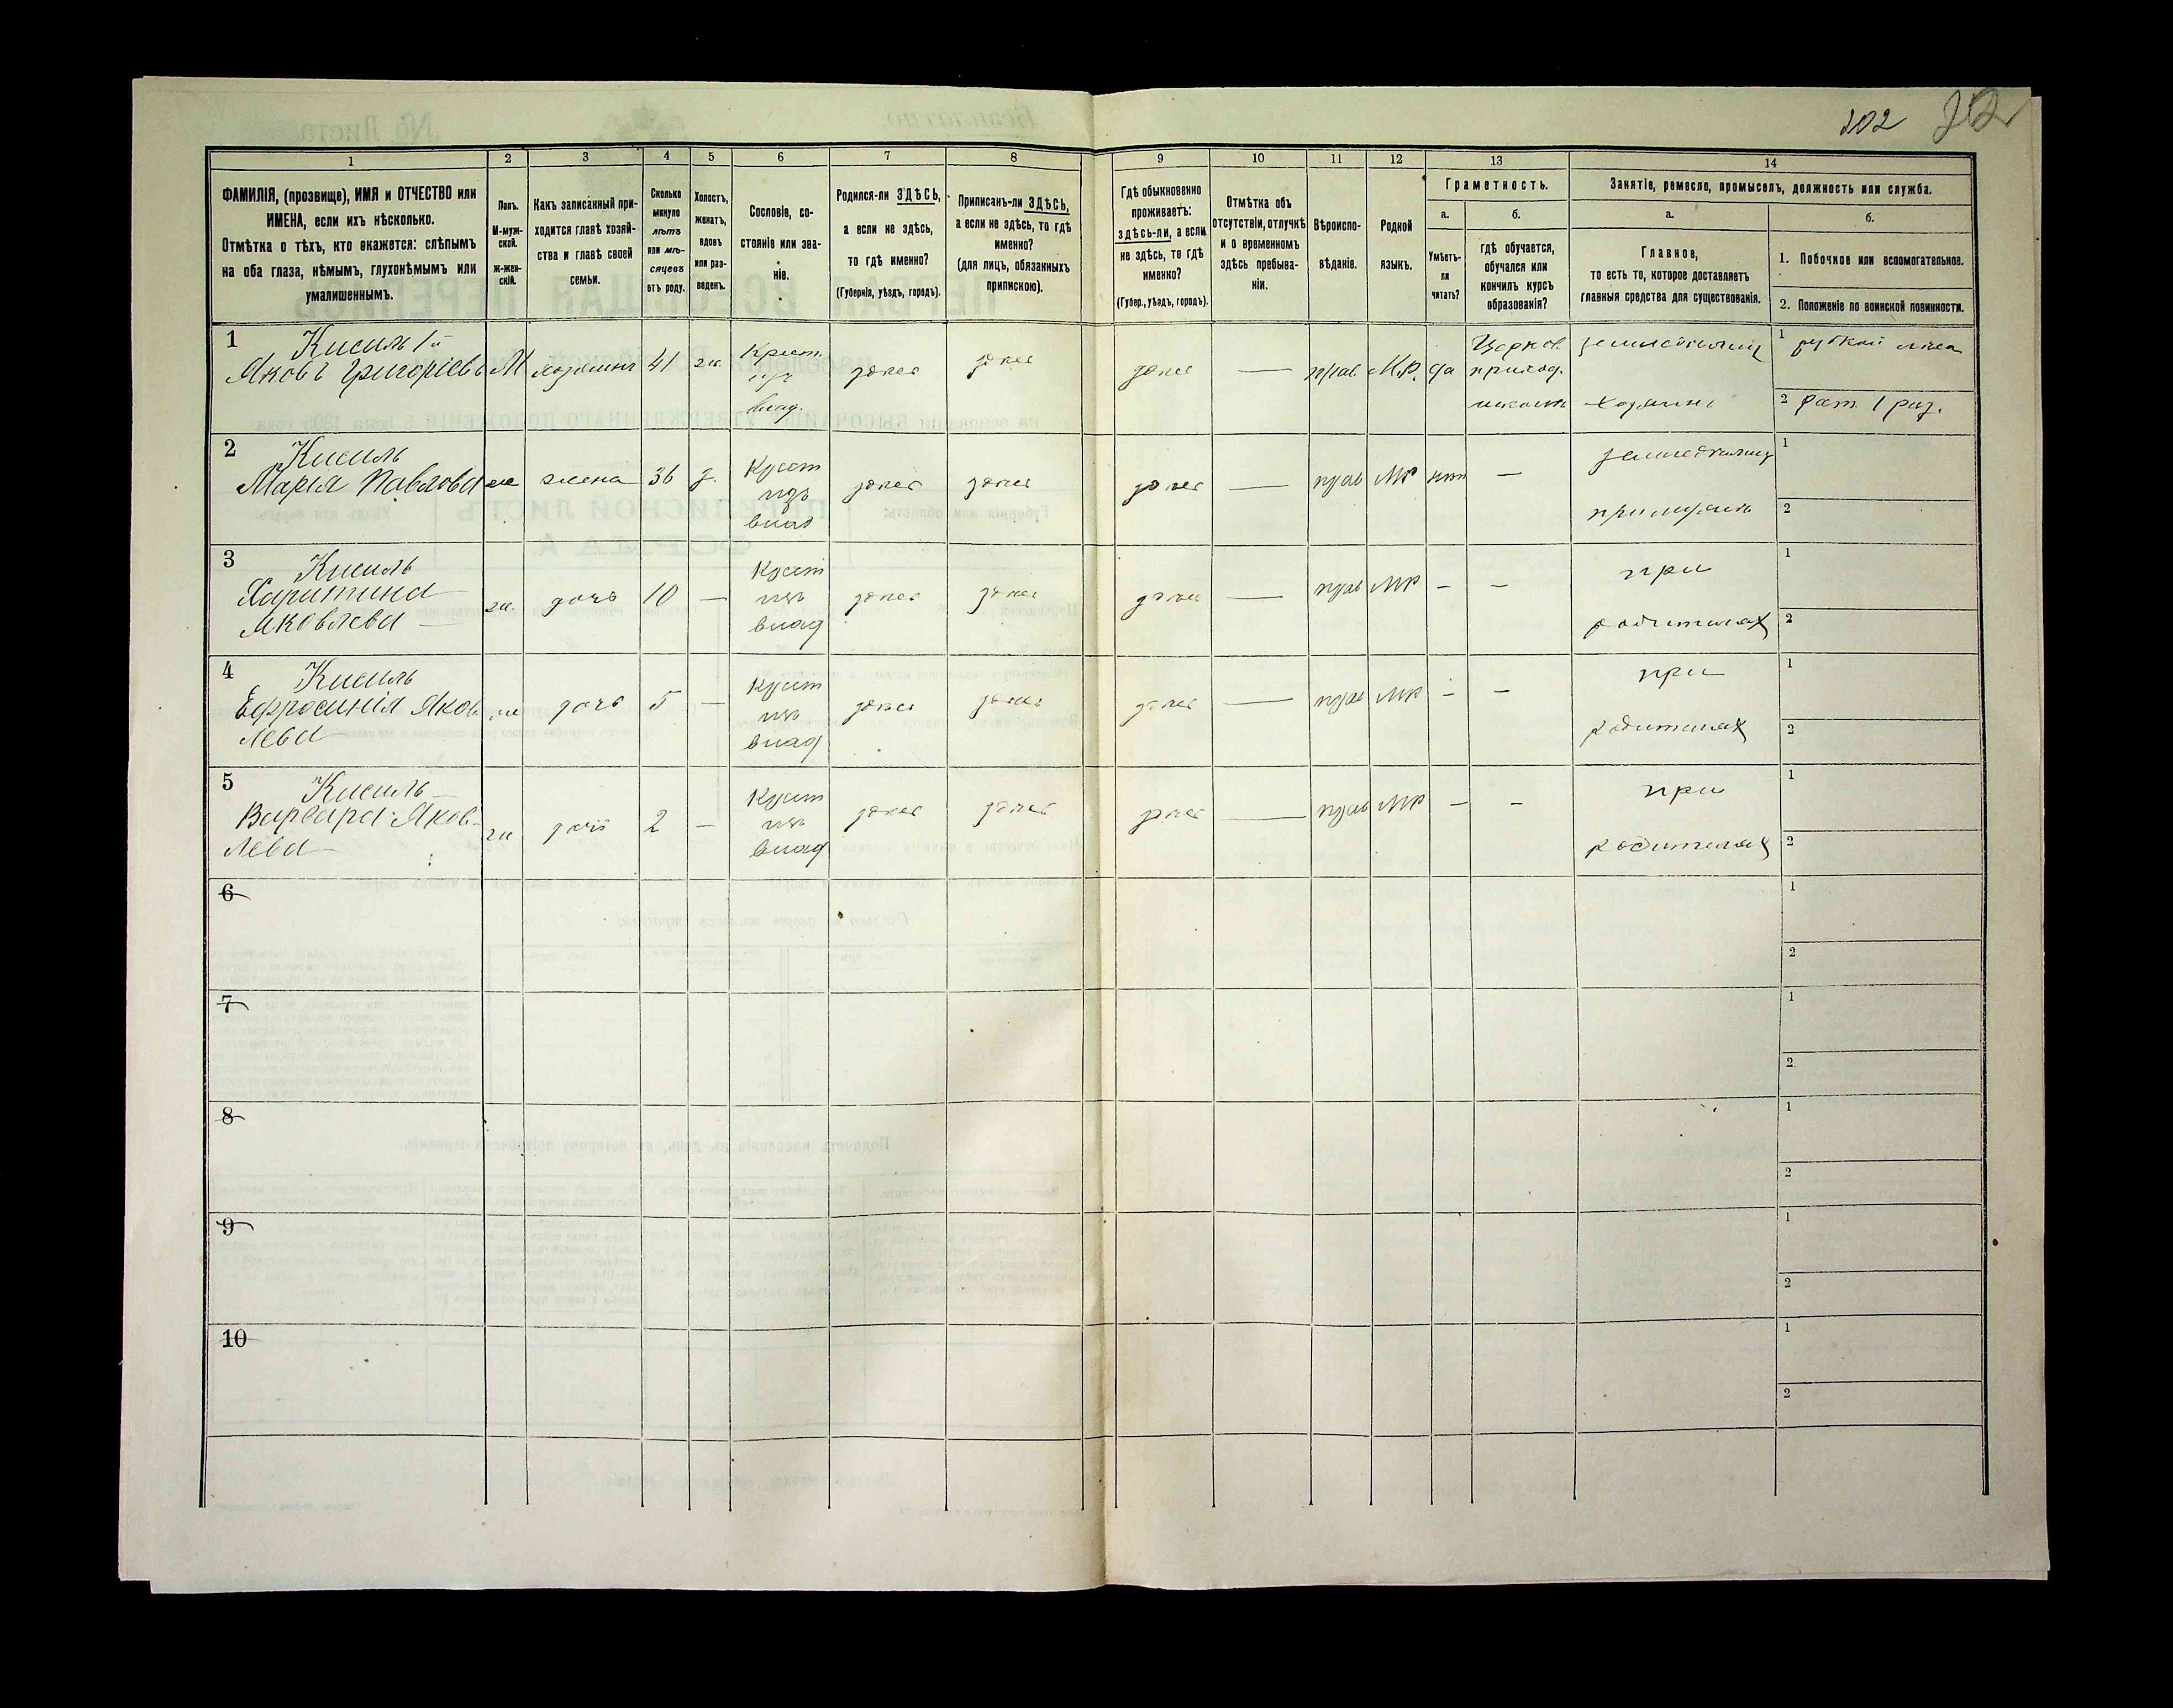 102
1
2
3
4
5
6
7
8
9
10
11
12
13
14
ФАМИЛІЯ, (прозвище), ИМЯ и ОТЧЕСТВО или
ИМЕНА, если ихъ нѣсколько.
Отмѣтка о тѣхъ, кто окажется: слѣпымъ
на оба глаза, нѣмымъ, глухонѣмымъ или
умалишеннымъ.
Полъ.
М-муж-
ской.
ж-жен-
скій.
Какъ записанный при-
ходится главѣ хозяй-
ства и главѣ своей
семьи.
Сколько
минуло
лѣтъ
или мѣ-
сяцевъ
отъ роду.
Холостъ,
женатъ,
вдовъ
или раз-
веденъ.
Сословіе, со-
стояніе или зва-
ніе.
Родился-ли ЗДѢСЬ,
а если не здѣсь,
то гдѣ именно?
(Губернія, уѣздъ, городъ).
Приписанъ-ли ЗДѢСЬ,
а если не здѣсь, то гдѣ
именно?
(для лицъ, обязанныхъ
припискою).
Гдѣ обыкновенно
проживаетъ:
здѣсь-ли, а если
не здѣсь, то гдѣ
именно?
(Губер., уѣздъ, городъ).
Отмѣтка объ
отсутствіи, отлучкѣ
и о временномъ
здѣсь пребыва-
ніи.
Вѣроиспо-
вѣданіе.
Родной
языкъ.
Грамотность.
а.
Умѣетъ-
ли
читать?
б.
гдѣ обучается,
обучался или
кончилъ курсъ
образованія?
Занятіе, ремесло, промыселъ, должность или служба.
а.
Главное,
то есть то, которое доставляетъ
главныя средства для существованія.
б.
1. Побочное или вспомогательное.
2. Положеніе по воинской повинности.
1
Кисиль 1й
Яковъ Григоріевъ
М
хозяинъ
41
ж.
Крест.
изъ
влад.
здѣсь
здѣсь
здѣсь
—
прав.
М.Р.
да
Церков.
приход.
школѣ
земледѣлецъ
хозяинъ
1
2 рат. 1 раз.
2
Кисиль
Марія Павлова
ж
жена
36
з.
Крест
изъ
влад
здѣсь
здѣсь
здѣсь
—
прав
МР
нѣт
—
земледѣлец
1
2
3
Кисиль
Харитина
Яковлева —
ж.
дочь
10
—
Крест
изъ
влад
здѣсь
здѣсь
здѣсь
—
прав
МР
—
—
при
родителях
1
2
4
Кисиль
Ефросинія Яков
лева —
ж
дочь
5
—
Крест
изъ
влад
здѣсь
здѣсь
здѣсь
—
прав
МР
—
—
при
родителях
1
2
5
Кисиль —
Варвара Яков-
лева —
ж
дочь
2
—
Крест
изъ
влад
здѣсь
здѣсь
здѣсь
—
прав
МР
—
—
при
родителях
1
2
6
1
2
7
1
2
8
1
2
9
1
2
10
1
2